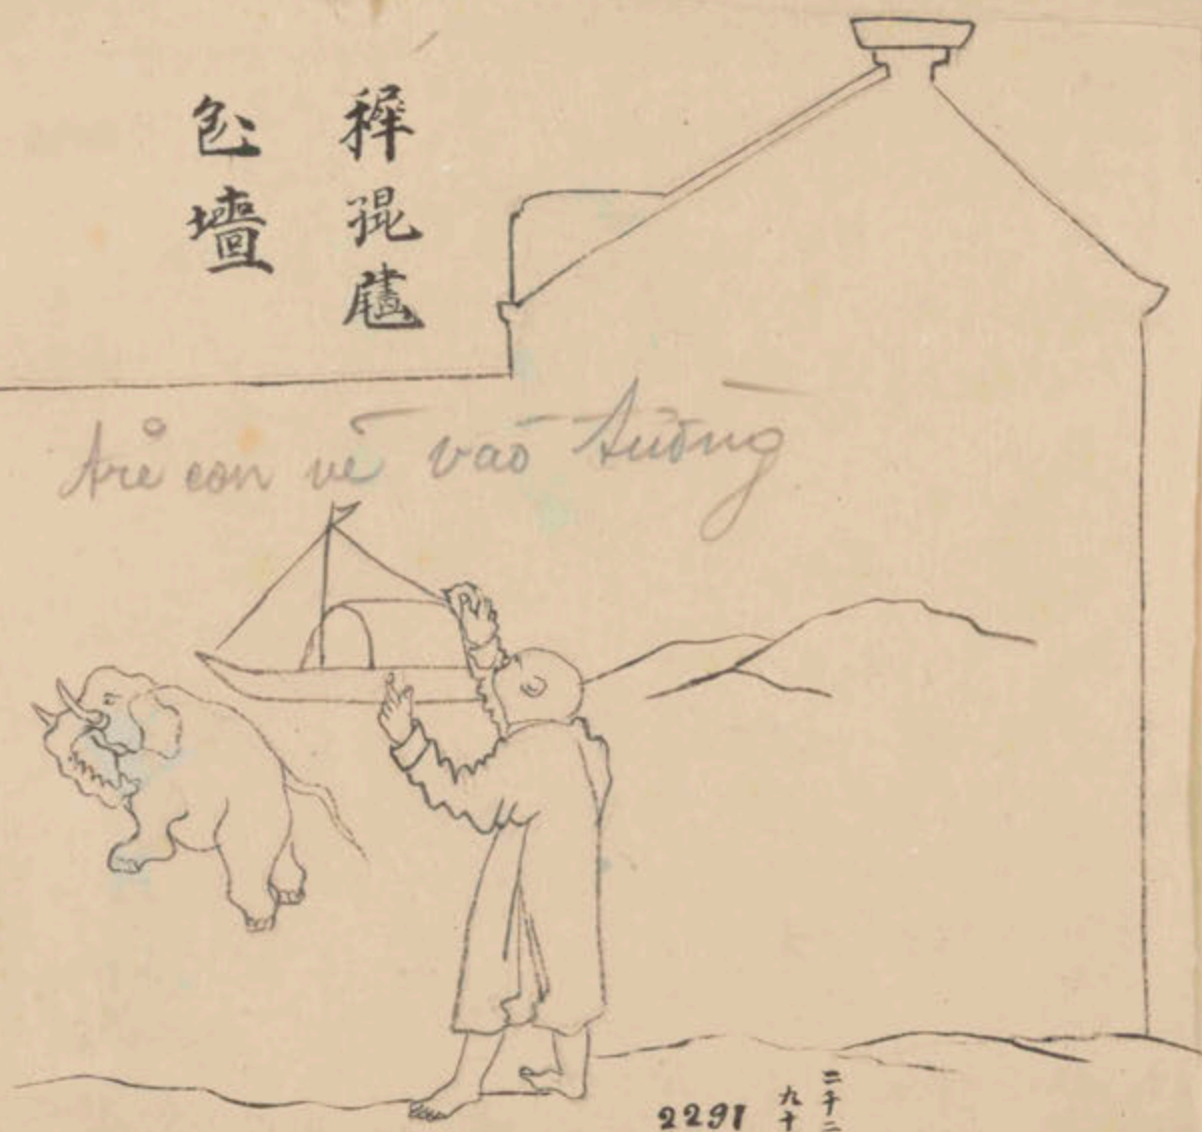 稺𡥵
墻
trẻ con vẽ vào tường
2291
二千二
九十